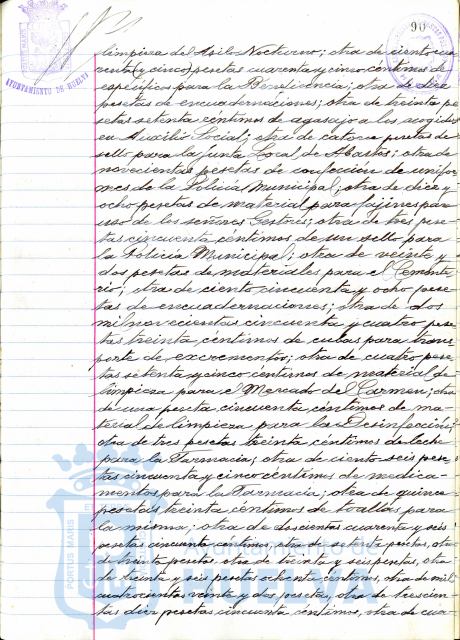 90
AYUNTAMIENTO DE HUELVA
limpieza del Asilo Nocturno; otra de ciento cua-
renta (y cinco) pesetas cuarenta y cinco céntimos de
específicos para la Beneficencia; otra de diez
pesetas de encuadernaciones; otra de treinta pe-
setas setenta céntimos de agasajo a los acogidos
en Auxilio Social; otra de catorce pesetas de
sello para la Junta Local de Abastos; otra de
novecientas pesetas de confección de unifor-
mes de la Policía Municipal; otra de diez y
ocho pesetas de material para fajines para
uso de los señores Gestores; otra de tres pese-
tas cincuenta céntimos de un sello para
la Policía Municipal; otra de veinte y
dos pesetas de materiales para el Cemente-
rio; otra de ciento cincuenta y ocho pese-
tas de encuadernaciones; otra de dos
mil novecientas cincuenta y cuatro pese-
tas treinta céntimos de cubas para trans-
porte de excrementos; otra de cuatro pese-
tas setenta y cinco céntimos de material de
limpieza para el Mercado del Carmen; otra
de una peseta cincuenta céntimos de ma-
terial de limpieza para la Desinfección;
otra de tres pesetas treinta céntimos de leche
para la Farmacia; otra de ciento seis pese-
tas cincuenta y cinco céntimos de medica-
mentos para la Farmacia; otra de quince
pesetas treinta céntimos de toallas para
la misma; otra de doscientas cuarenta y seis
pesetas cincuenta céntimos, otra de setenta pesetas, otra
de treinta pesetas, otra de treinta y seis pesetas, otra
de treinta y seis pesetas ochenta céntimos, otra de mil
cuatrocientas veinte y dos pesetas, otra de trescien-
tas diez pesetas cincuenta céntimos, otra de cua-
PORTUS MARIS
Ayuntamiento de
HUELVA